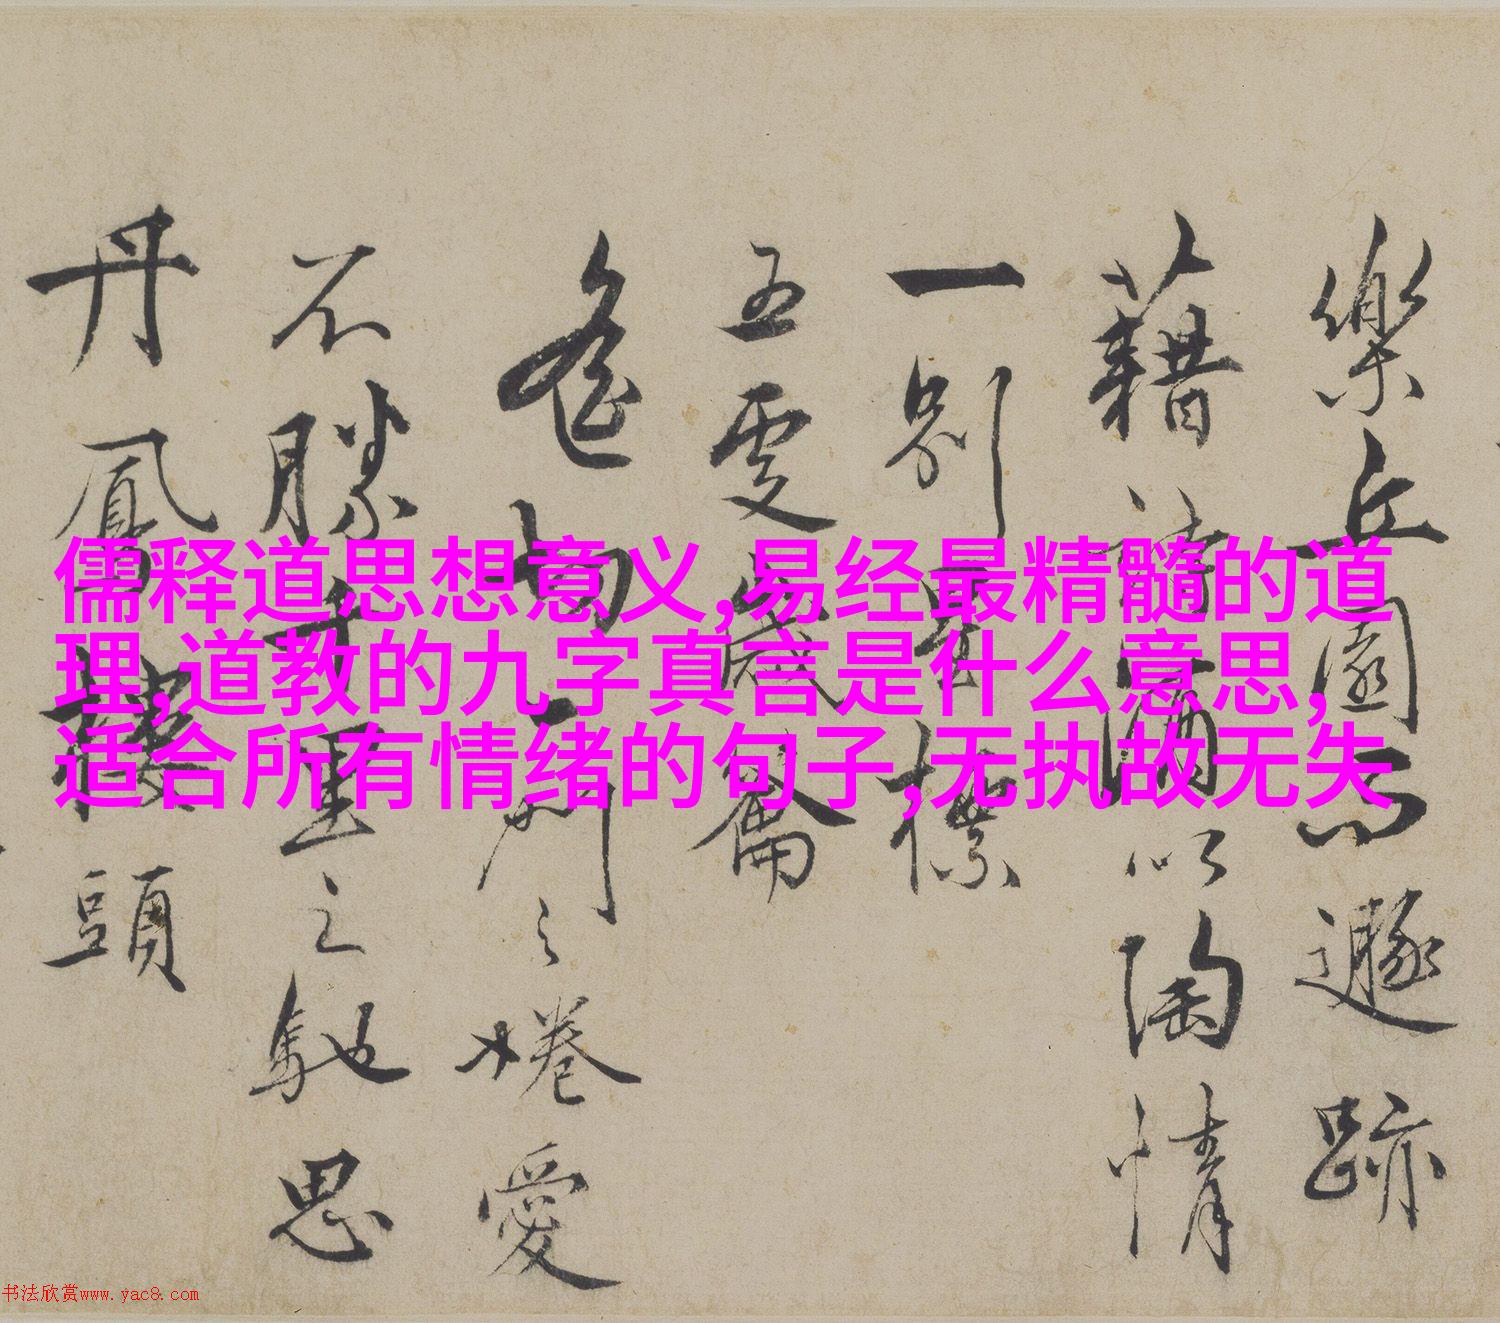 儒释道思想意义,易经最精髓的道
理,道教的九字真言是什么意思,
适合所有情绪的句子,无执故无失
樂丘園而遯跡
藉詩酒以陶情
一別星橋
五更歲籥
不勝千里之馳思
丹鳳樓頭
书法欣赏www.yac8.com